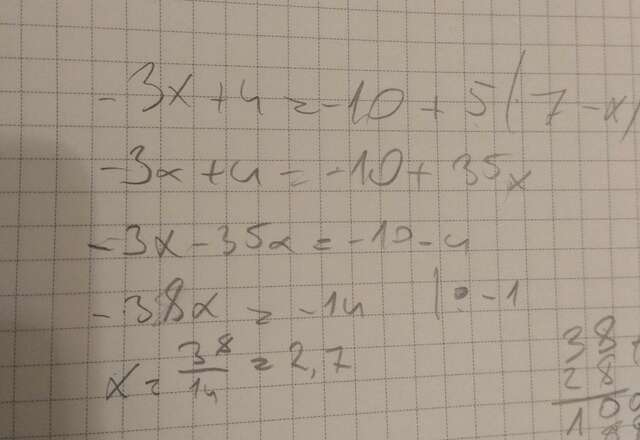 -3x+4=-10+5(7-x)
-3x+4=-10+35x
-3x-35x=-10-4
-38x=-14 |:-1
x=38/14=2,7
38
28
100